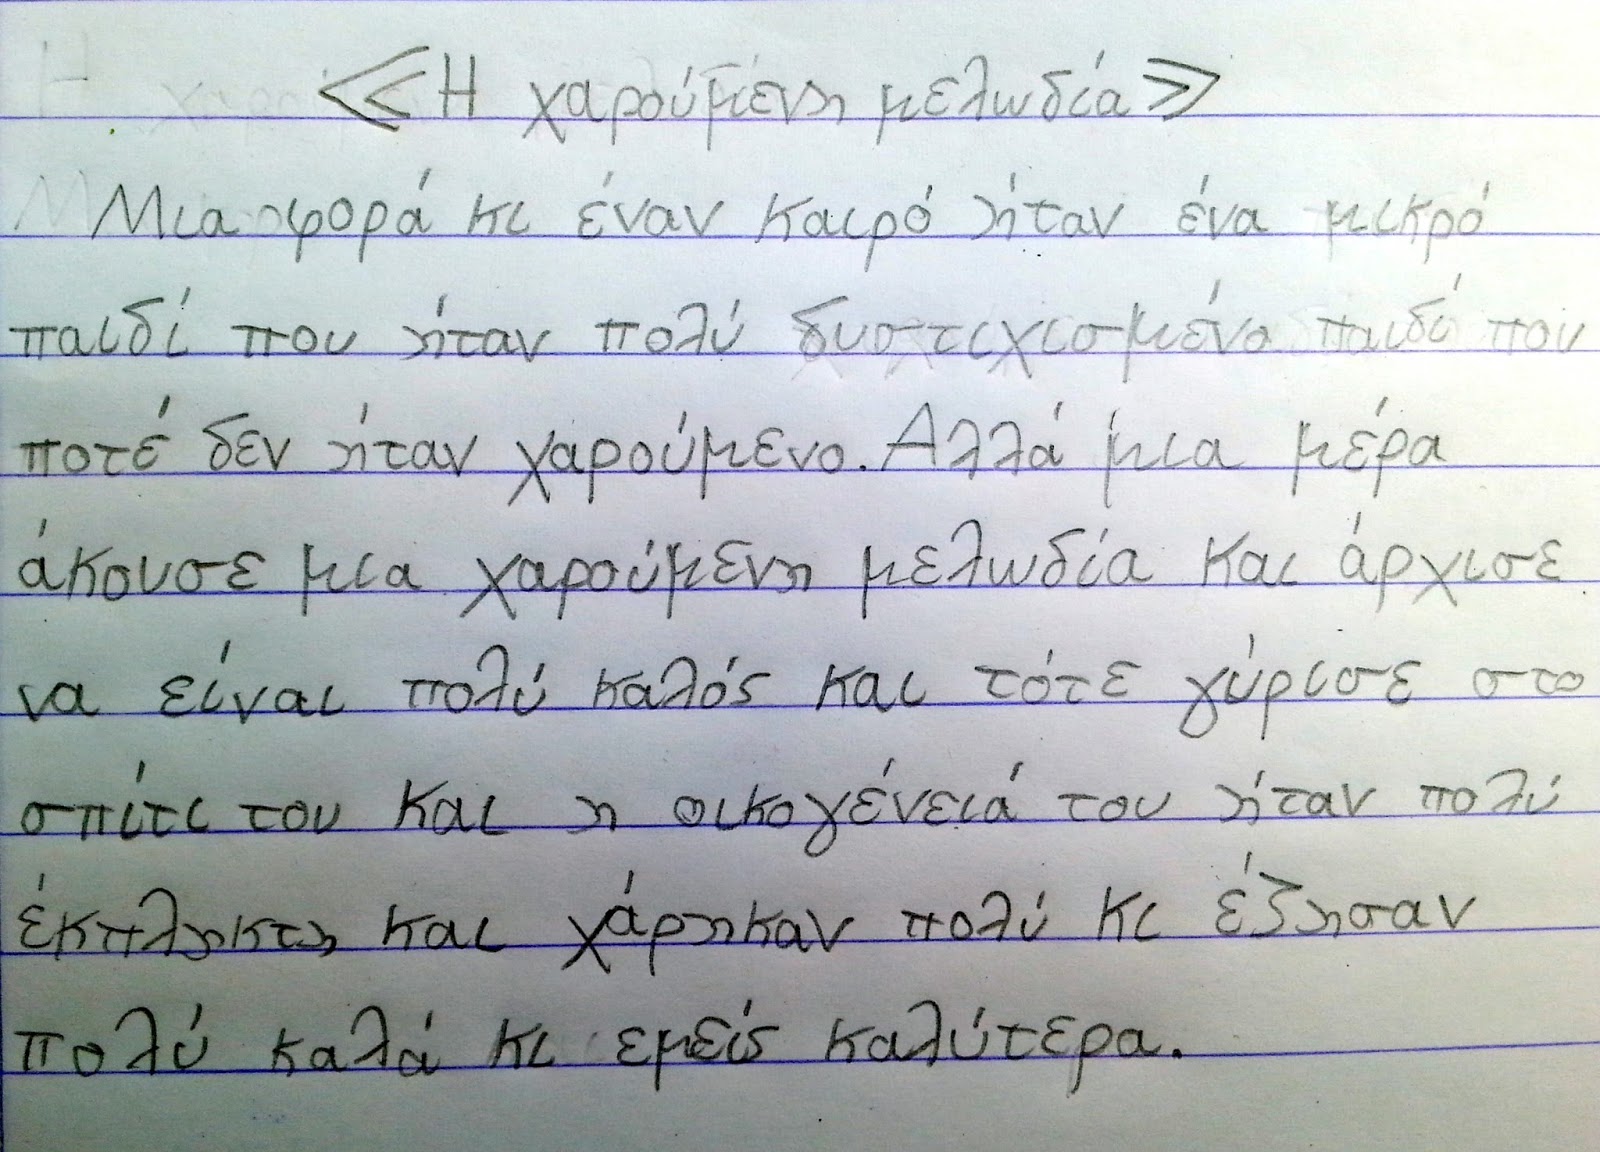 ≪Η χαρούμενη μελωδία≫
Μια φορά κι έναν καιρό ήταν ένα μικρό
παιδί που ήταν πολύ δυστιχισμένο παιδί που
ποτέ δεν ήταν χαρούμενο. Αλλά μια μέρα
άκουσε μια χαρούμενη μελωδία και άρχισε
να είναι πολύ καλός και τότε γύρισε στο
σπίτι του και η οικογένειά του ήταν πολύ
έκπληκτη και χάρηκαν πολύ κι έζησαν
πολύ καλά κι εμείς καλύτερα.